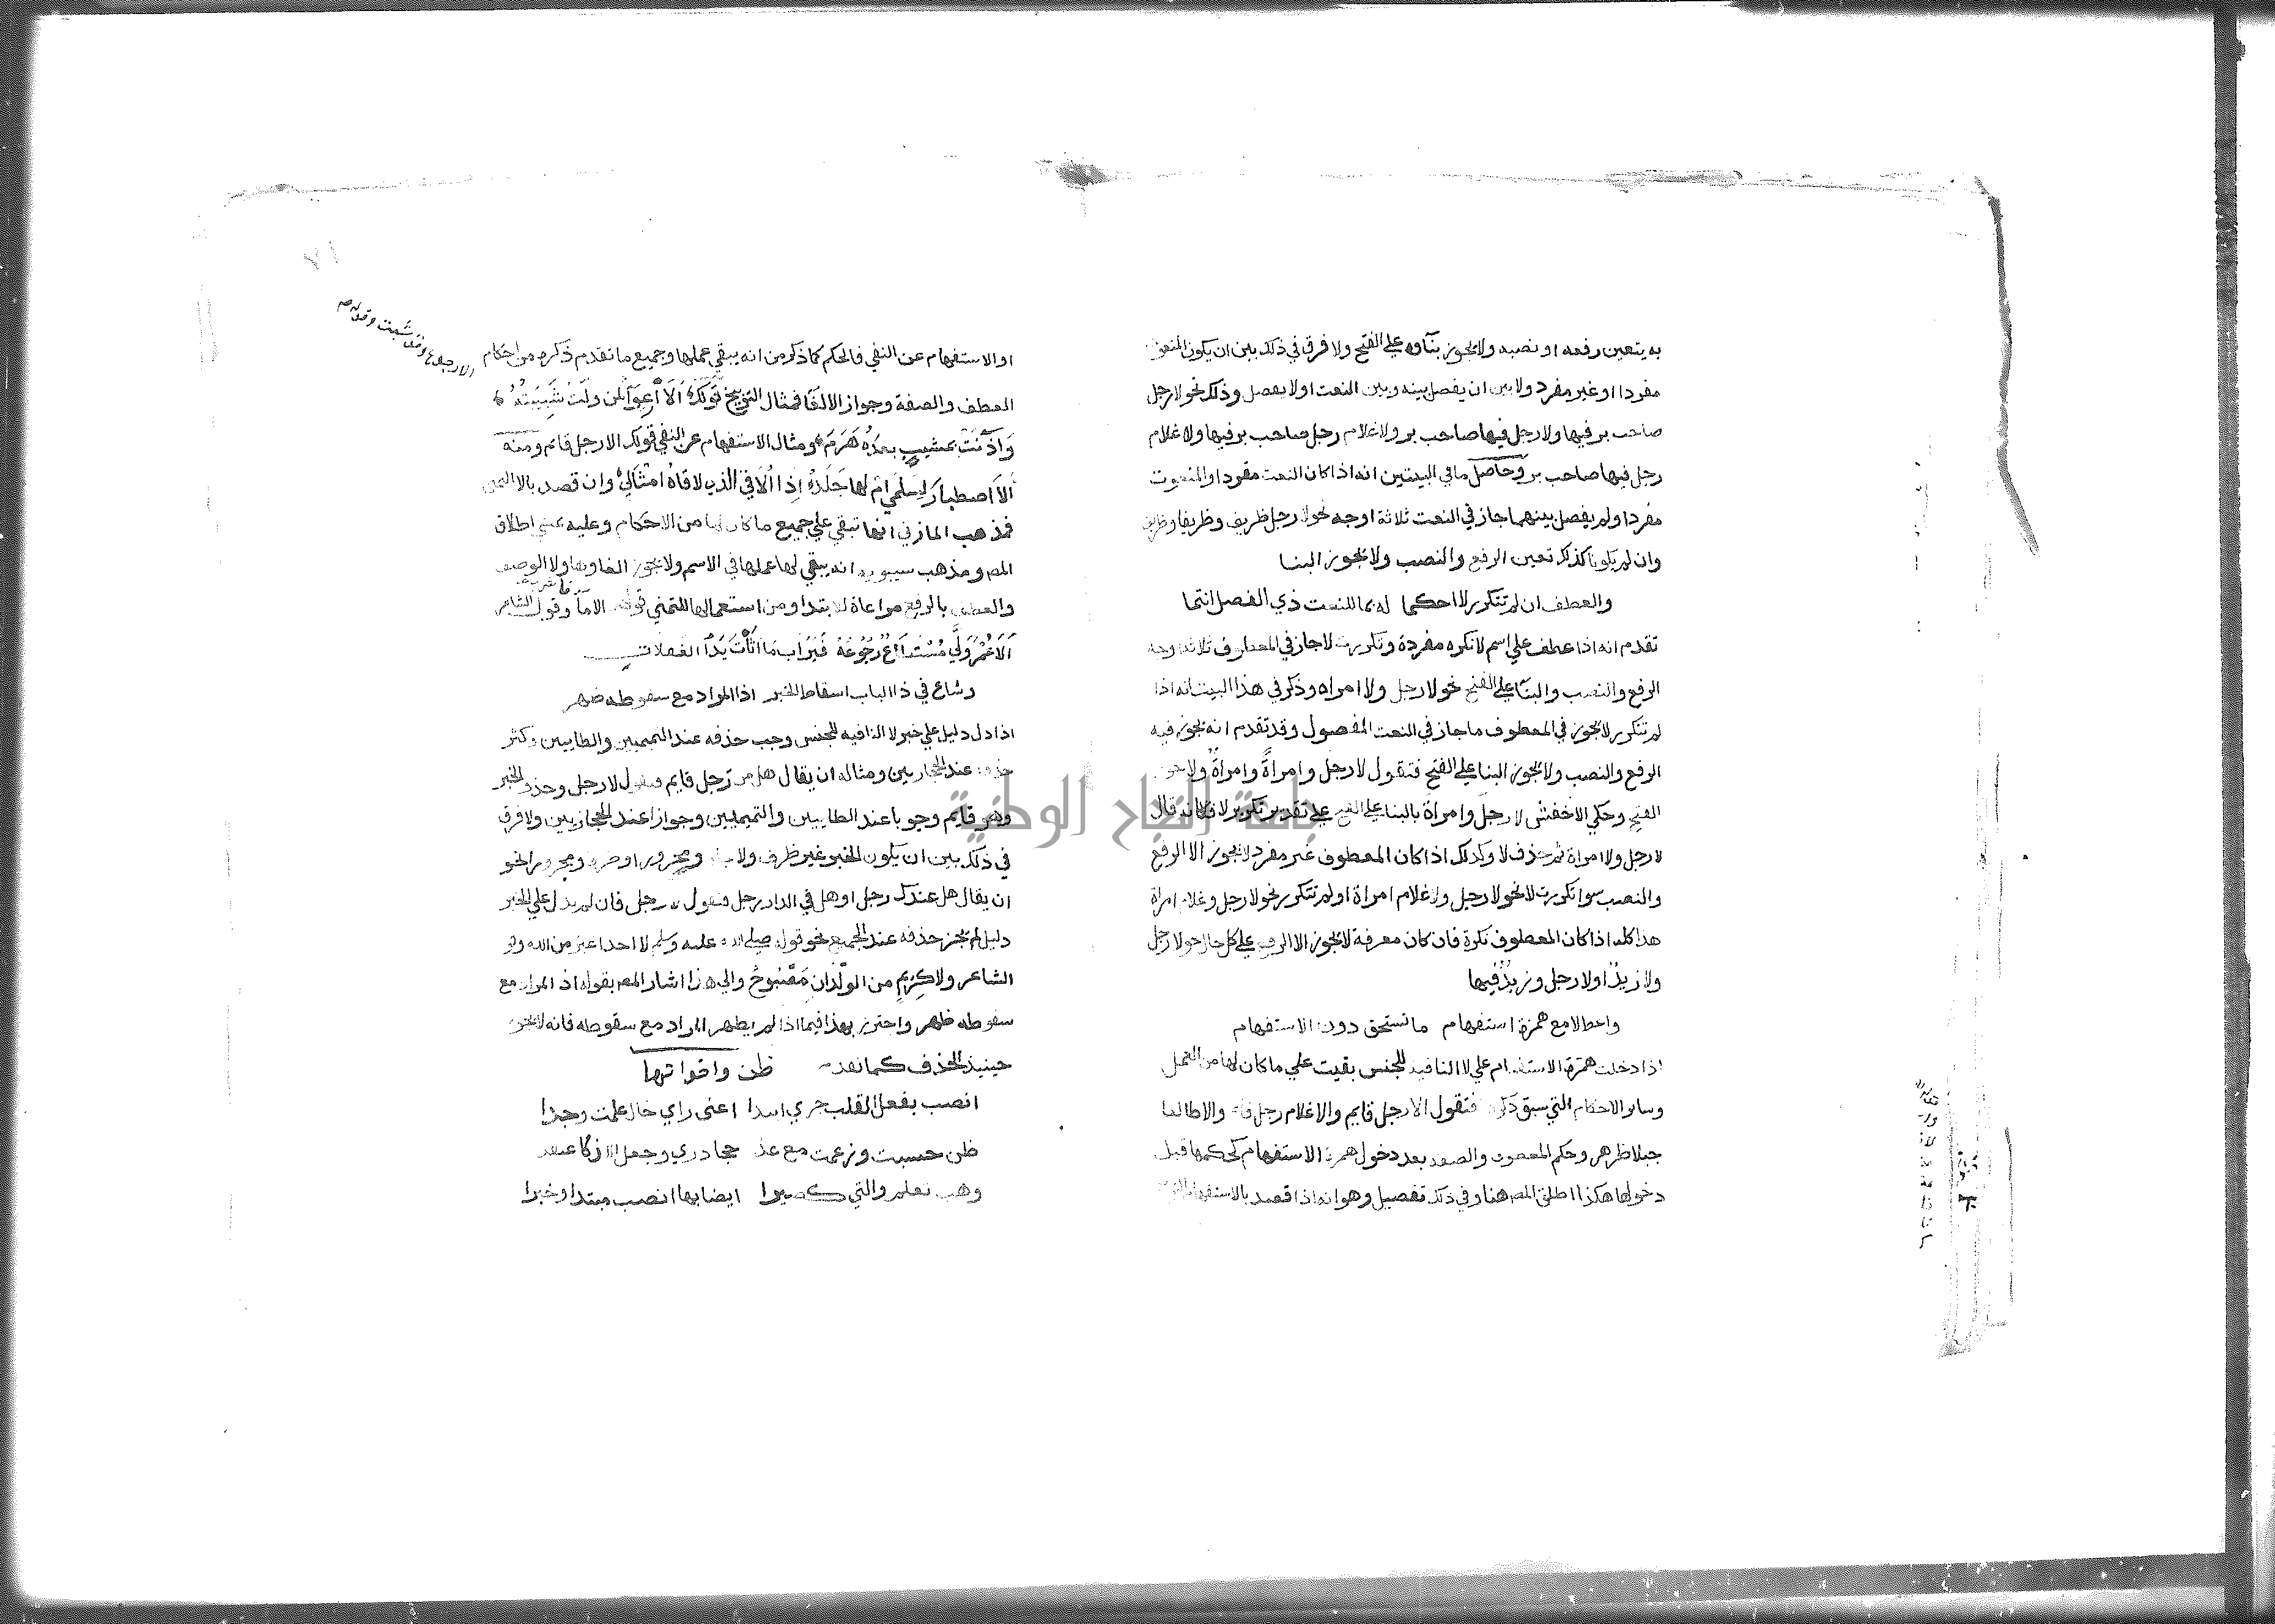 به يتعين رفعه او نصبه ولا يجوز بناوه علي الفتح ولا فرق في ذلك بين ان يكون المنعوت
مفردا او غير مفرد ولا بين ان يفصل بينه وبين النعت اولا يفصل وذلك نحو لا رجل
صاحب بر فيها ولا رجل فيها صاحب بر ولا غلام رجل صاحب بر فيها ولا غلام
رجل فيها صاحب بر وحاصل ما في البيتين انه اذا كان النعت مفردا والمنعوت
مفردا ولم يفصل بينهما جاز في النعت ثلاثة اوجه نحو لا رجل ظريف وظريفا وظريف
وان لم يكونا كذلك تعين الرفع والنصب ولا يجوز البنا
والعطف ان لم تتكرر لا احكما له بما للنعت ذي الفصل انتما
تقدم انه اذا عطف علي اسم لا نكره مفردة وتكررت لا جاز في المعطوف ثلاثة اوجه
الرفع والنصب والبنا علي الفتح نحو لا رجل ولا امراه وذكر في هذا البيت انه اذا
لم تتكرر لا يجوز في المعطوف ما جاز في النعت المفصول وقد تقدم انه يجوز فيه
الرفع والنصب ولا يجوز البنا علي الفتح فتقول لا رجل وامراةً وامراةٌ ولا يجوز
الفتح وحكي الاخفش لا رجل وامراة بالبنا علي الفتح علي تقدير تكرير لا فكانه قال
لا رجل ولا امراة ثم حذف لا وكذلك اذا كان المعطوف غير مفرد لا يجوز الا الرفع
والنصب سوا تكررت لا نحو لا رجل ولا غلام امراة او لم تتكرر نحو لا رجل وغلام امراة
هذا كله اذا كان المعطوف نكرة فان كان معرفة لا يجوز الا الرفع علي كل حال نحو لا رجل
ولا زيدٌ او لا رجل وزيدٌ فيها
واعط لا مع همزة استفهام ما تستحق دون الاستفهام
اذا دخلت همزة الاستفهام علي لا النافيه للجنس بقيت علي ما كان لها من العمل
وساير الاحكام التي سبق ذكرها فتقول الا رجل قايم والا غلام رجل قايم والا طالعا
جبلا ظاهر وحكم المعطوف والصفه بعد دخول همزة الاستفهام كحكمها قبل
دخولها هكذا اطلق المص هنا وفي ذلك تفصيل وهو انه اذا قصد بالاستفهام التوبيخ
او الاستفهام عن النفي فالحكم كما ذكر من انه يبقي عملها وجميع ما تقدم ذكره من احكام
العطف والصفة وجواز الالغا فمثال التوبيخ قولك اَلَا ارعِوَآ لمن ولّت شَبِيبَتُهُ
وَاذَنَتْ بمَشيبٍ بعدَهُ هَرَمُ ومثال الاستفهام عن النفي قولك الا رجل قايم ومنه
اَلَا اصطبارَ لِسلمي ام لها جَلَدٌ اِذا اُلَاقي الذي لاقاهُ امثالي وان قصد بالا التمني
فمذهب المازني انها تبقي علي جميع ما كان لها من الاحكام وعليه يمشي اطلاق
المص ومذهب سيبويه انه يبقي لها عملها في الاسم ولا يجوز الغاوها ولا الوصف
والعطف بالرفع مراعاة للابتدا ومن استعمالها للتمني قولهم الا مآ وقول الشاعر
اَلَا عُمْرَ وَلَّي مُسْتَطاعٌ رُجُوعُهُ فَيَرْاَبَ مَا اَثْأَتْ يَدُ الغفلات
وشاع في ذا الباب اسقاط الخبر اذا المراد مع سقوطه ظهر
اذا دل دليل علي خبر لا النافيه للجنس وجب حذفه عند التميميين والطاييين وكثر
حذفه عند الحجازيين ومثاله ان يقال هل من رجل قايم فتقول لا رجل وحذف الخبر
وهو قايم وجوبا عند الطاييين والتميميين وجوازا عند الحجازيين ولا فرق
في ذلك بين ان يكون الخبر غير ظرف ولا جار ومجرور او ظرفا ومجرورا نحو
ان يقال هل عندك رجل او هل في الدار رجل فتقول لا رجل فان لم يدل علي الخبر
دليل لم يجز حذفه عند الجميع نحو قوله صلي الله عليه وسلم لا احد اغير من الله وقول
الشاعر ولا كريمٍ من الولدانِ مَصْبوحُ والي هذا اشار المص بقوله اذ المراد مع
سقوطه ظهر واحترز بهذا فيما اذا لم يظهر المراد مع سقوطه فانه لا يجوز
حينيذ الحذف كما تقدم
ظن واخواتها
انصب بفعل القلب جزي ابتدا اعني راي خال علمت وجدا
ظن حسبت وزعمت مع عد حجا دري وجعل اللذ كاعتقد
وهب تعلم والتي كصيرا ايضا بها انصب مبتدا وخبرا
جامعة النجاح الوطنية